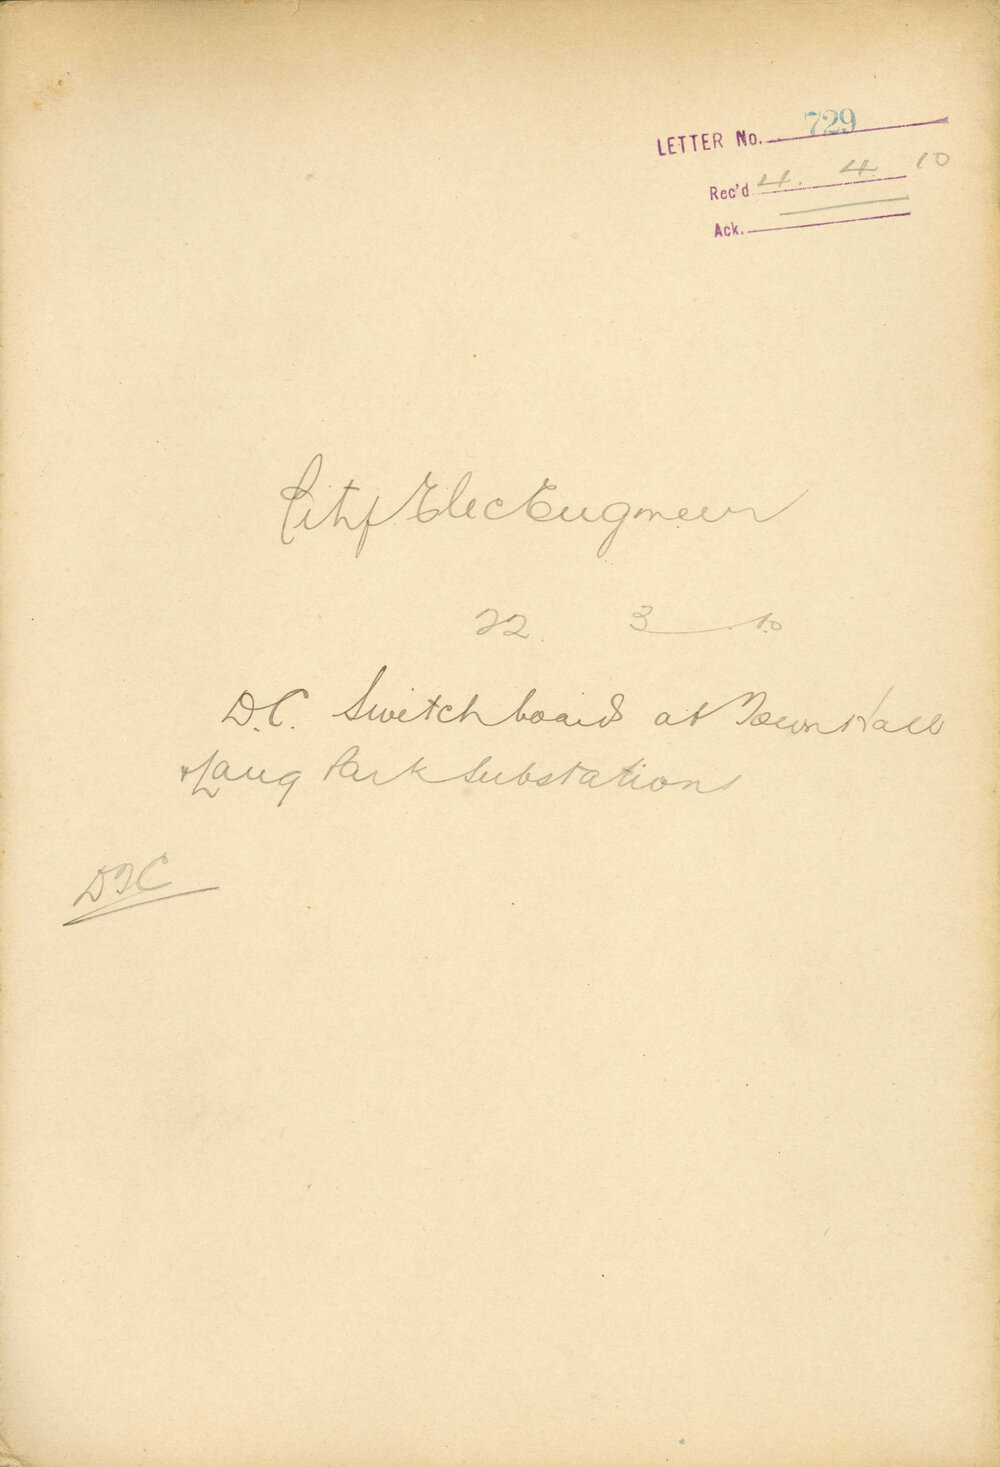 LETTER No. 729
Rec'd 4. 4. 10
Ack.
City Elec Engineer
22. 3 10
D.C. Switchboards at Town Hall
& Lang Park Substations